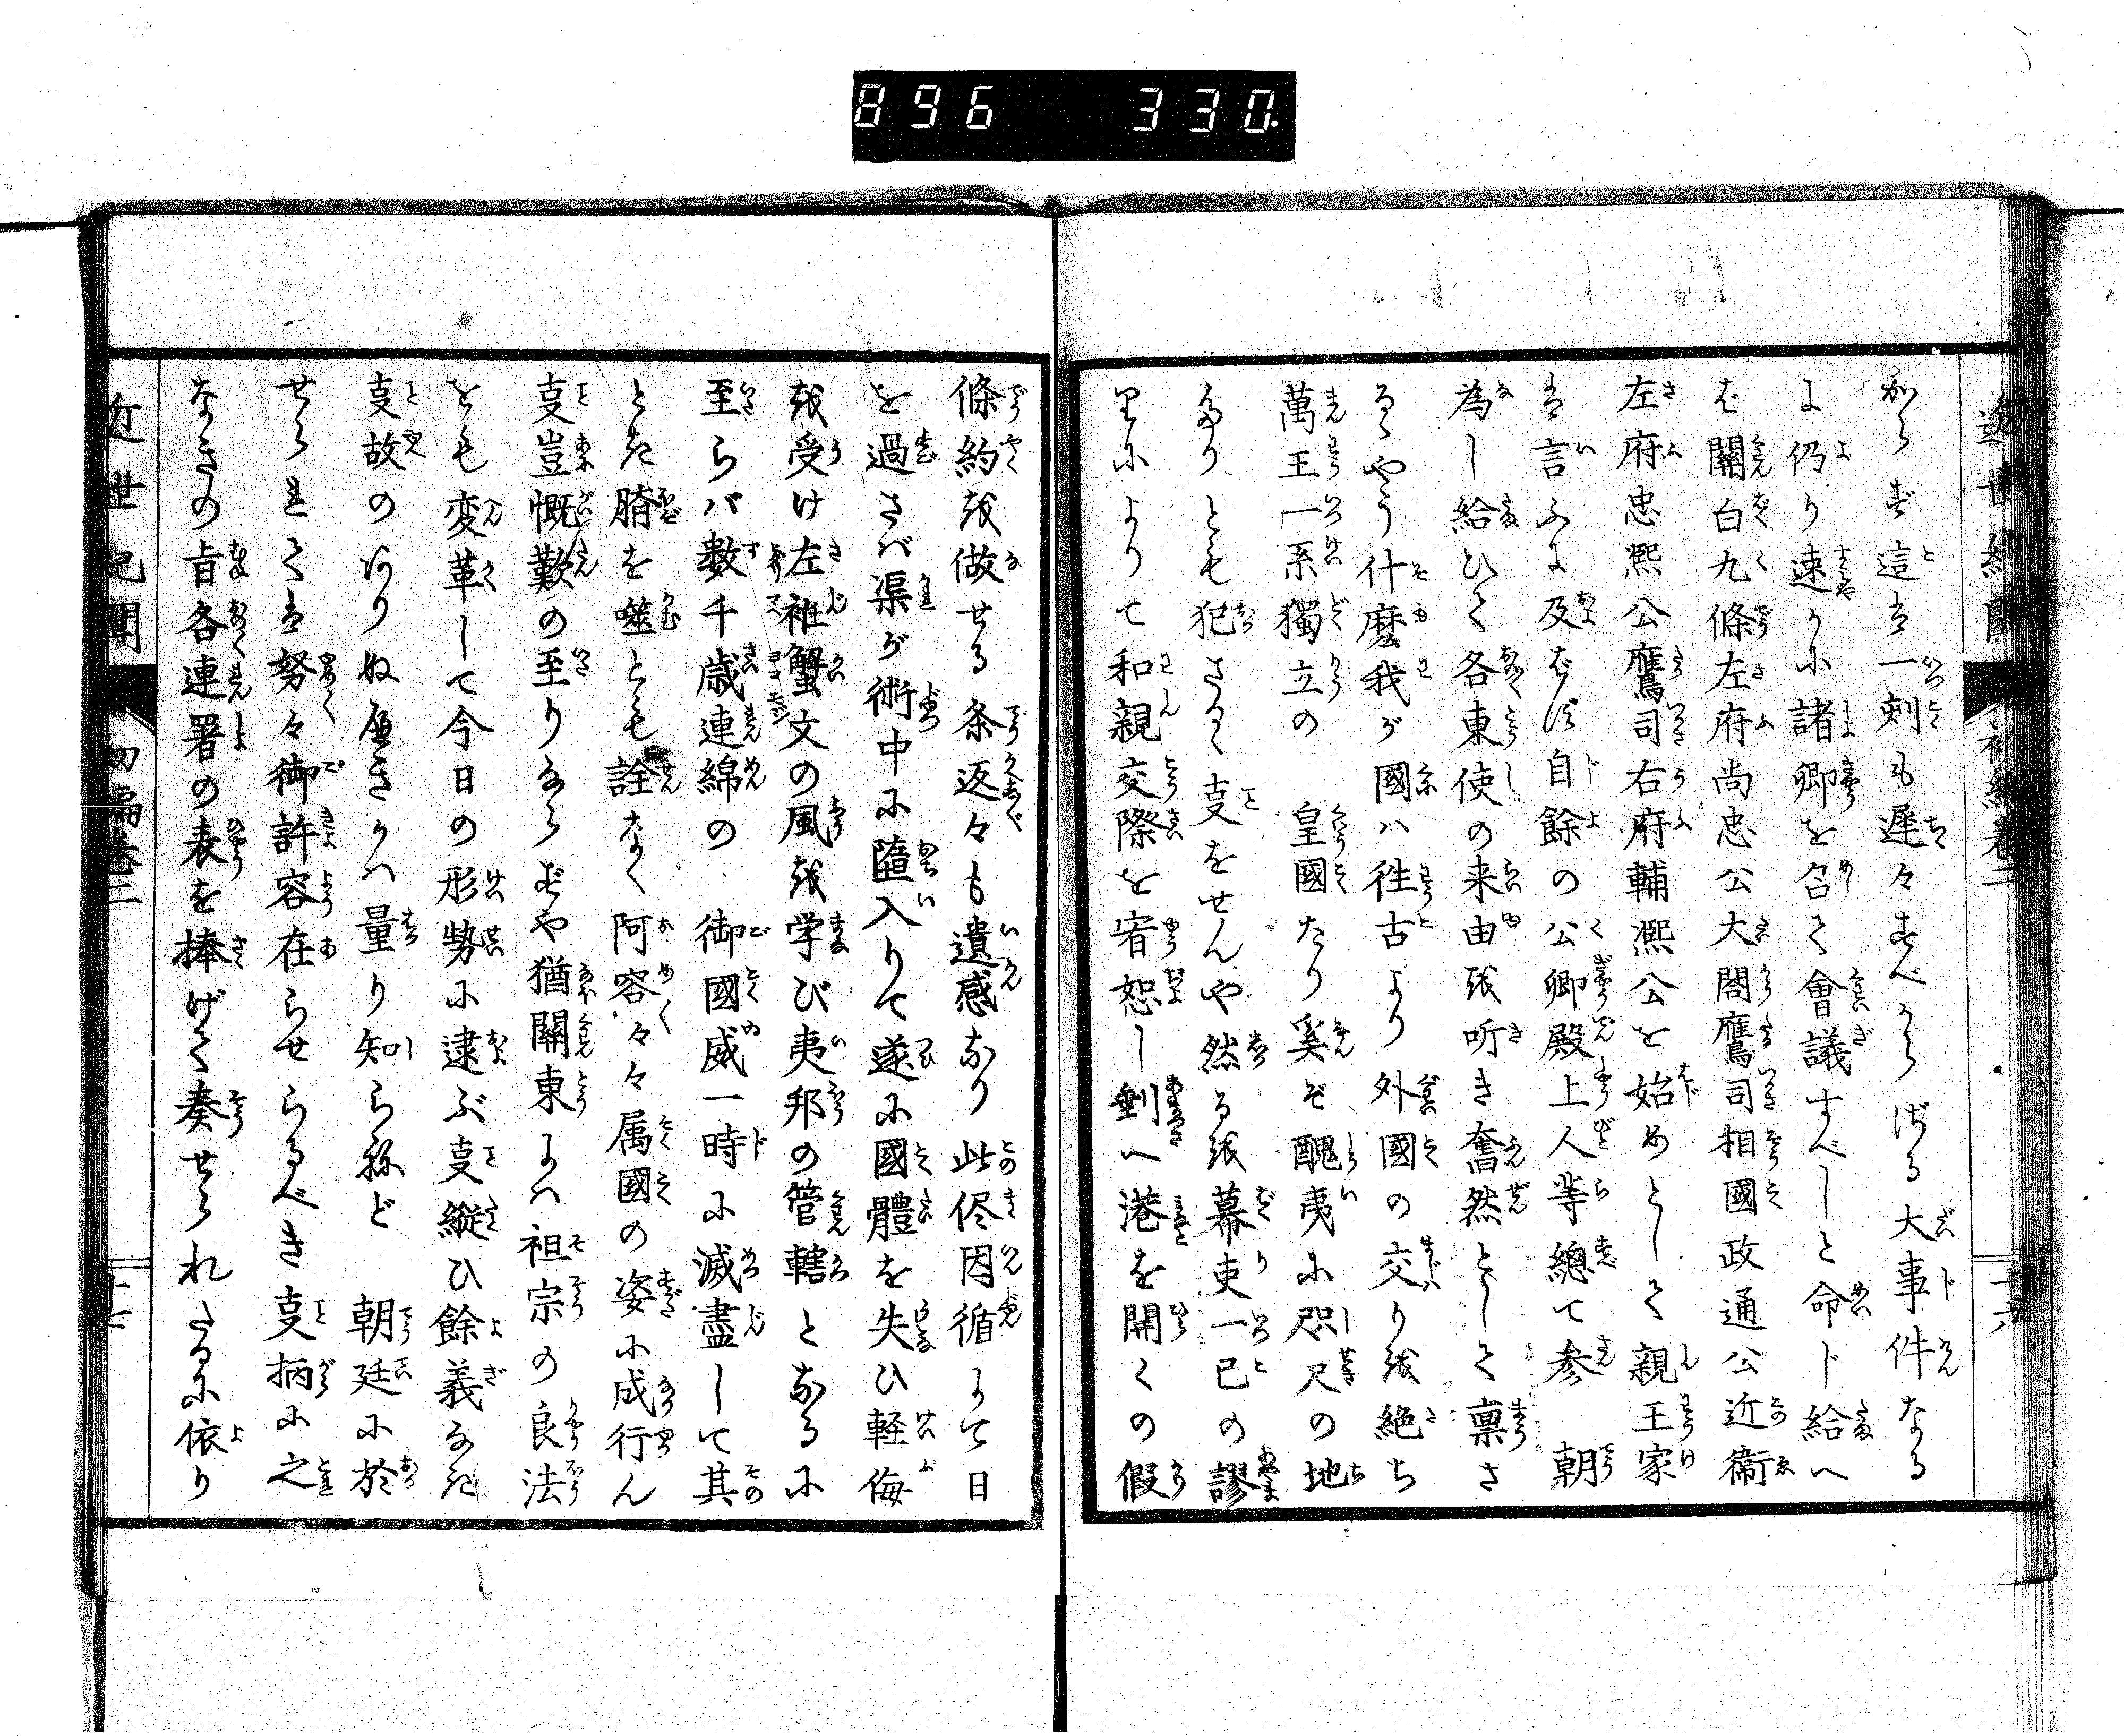 896 330.
近世紀聞 初編巻二 十六
からず這は一刻も遅々すべからざる大事件なる
に仍り速かに諸卿を召て會議すべしと命ト給へ
ば關白九條左府尚忠公大閤鷹司相國政通公近衛
左府忠凞公鷹司右府輔凞公を始めとして親王家
は言ふに及ばず自餘の公卿殿上人等總て参 朝
為し給ひて各東使の来由を听き奮然として禀さ
るゝやう什麼我が國ハ徃古より外國の交り を絶ち
萬王一系獨立の 皇國たり奚ぞ醜夷に咫尺の地
たりとも犯さるゝ亊をせんや然るを幕吏一已の謬
りによりて和親交際を宥恕し剰へ港を開くの假
條約を做せる条返々も遺感なり此侭因循して日
を過さバ渠が術中に墮入りて遂に國體を失ひ軽侮
を受け左袵蟹文の風を学び夷邦の管轄となるに
至らバ数千歳連綿の 御國威一時に滅盡して其
とき臍を噬とも詮なく阿容々々属國の姿に成行ん
亊豈慨歎の至りならずや猶關東にハ祖宗の良法
をも変革して今日の形勢に逮ぶ亊縦ひ餘義なき
亊故のありぬべきかハ量り知らねど 朝廷に於
せられては努々御許容在らせらるべき亊柄に之
なきの旨各連署の表を捧げて奏せられたるに依り
近世紀聞 初編巻二 十七